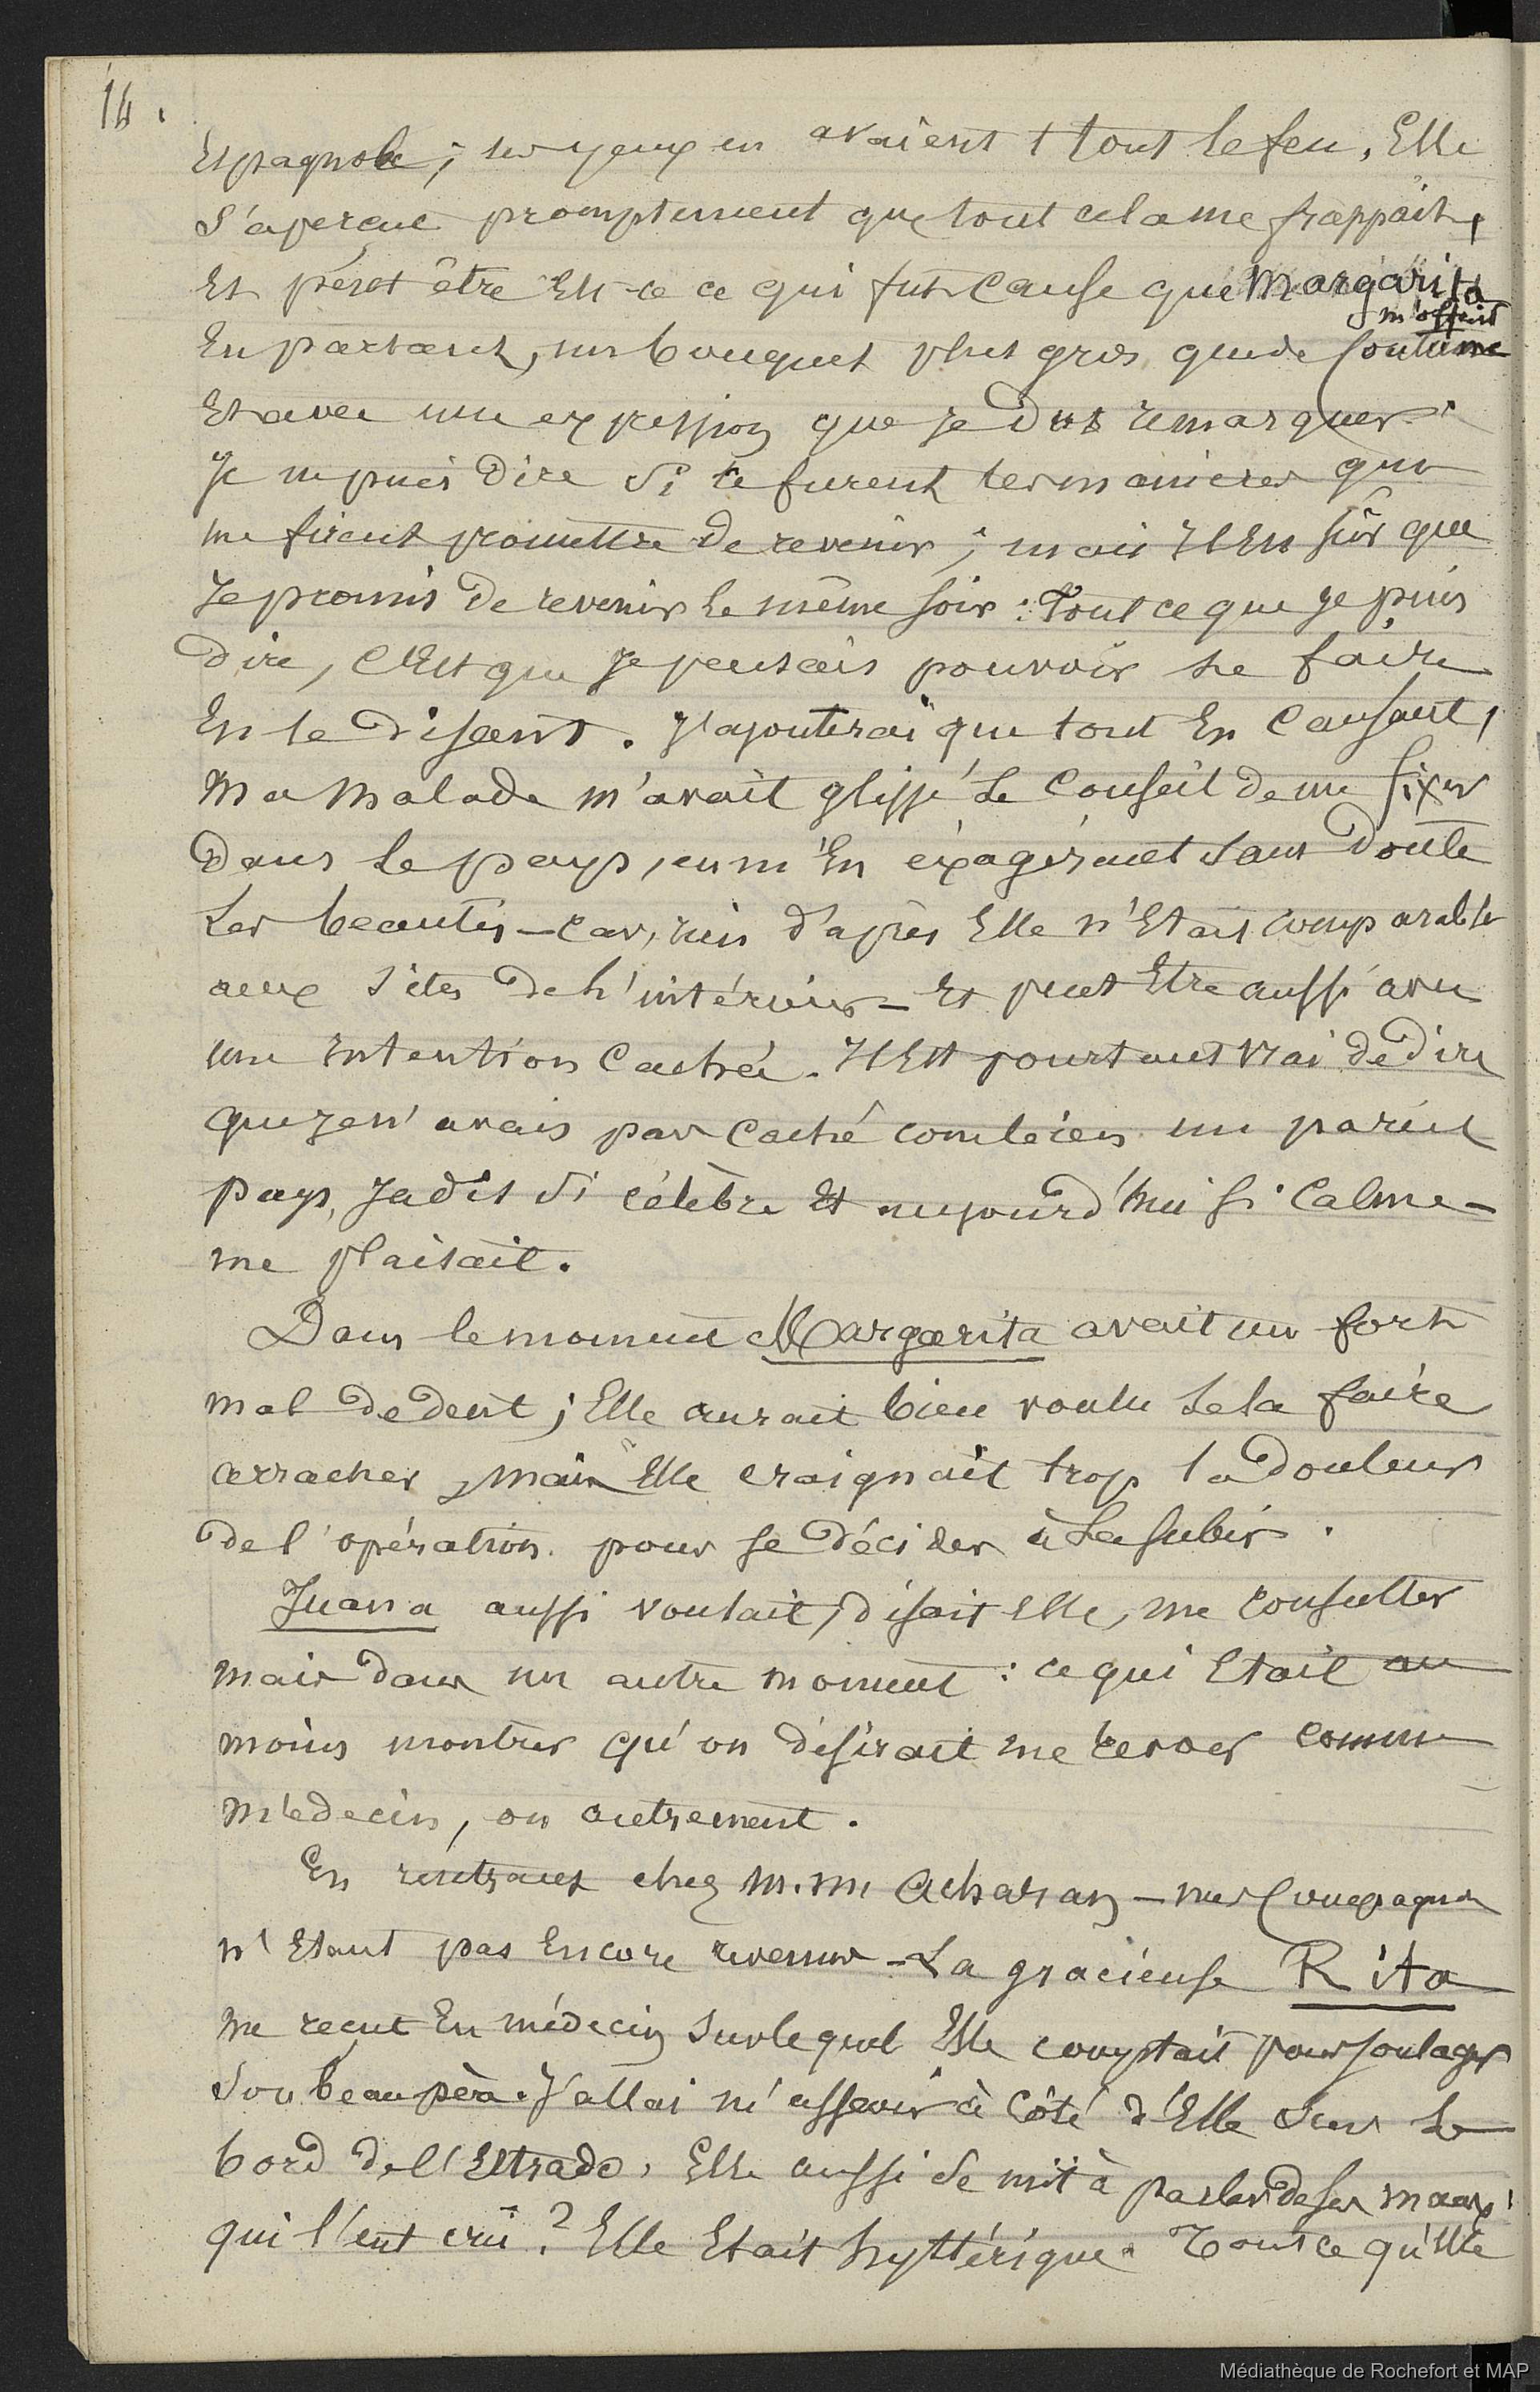 14.
Espagnole; ses yeux en avaient tout le feu. Elle
s'aperçut promptement que tout cela me frappait,
Et peut être Est-ce ce qui fut cause que Margarita
m'offrit
En partant, un bouquet plus gros que de coutume
Et avec une expression que je dus remarquer.
Je ne puis dire si ce furent ses manières qui
me firent promettre de revenir; mais il Est sûr que
Je promis de revenir le même soir: Tout ce que je puis
dire, c'Est que Je pensais pouvoir le faire
En le disant. J'ajouterai que tout En causant,
Ma malade m'avait glissé le conseil de me fixer
dans le pays, en m'En éxagérant sans doute
Les beautés – car, rien d'après Elle n'Etait comparable
aux sites de l'intérieur – Et peut Etre aussi avec
une intention cachée. Il Est pourtant vrai de dire
que je n'avais pas caché combien un pareil
pays, jadis si célèbre Et aujourd'hui si calme –
me plaisait.
Dans le moment Margarita avait un fort
mal de dent; Elle aurait bien voulu se la faire
arracher, mais Elle craignait trop la douleur
de l'opération pour se décider à la subir.
Juana aussi voulait, disait Elle, me consulter
mais dans un autre moment: ce qui Etait au
moins montrer qu'on désirait me revoir comme
médecin, ou autrement.
En rentrant chez M.M. Acharan – mes compagnons
n'Etant pas Encore revenus – La gracieuse Rita
me reçut En médecin sur lequel Elle comptait pour soulager
son beau père. J'allai m'asseoir à côté d'Elle sur le
bord de l'Estrade. Elle aussi se mit à parler de ses maux;
qui l'eut crû? Elle Etait hystérique. Tout ce qu'Elle
Médiathèque de Rochefort et MAP